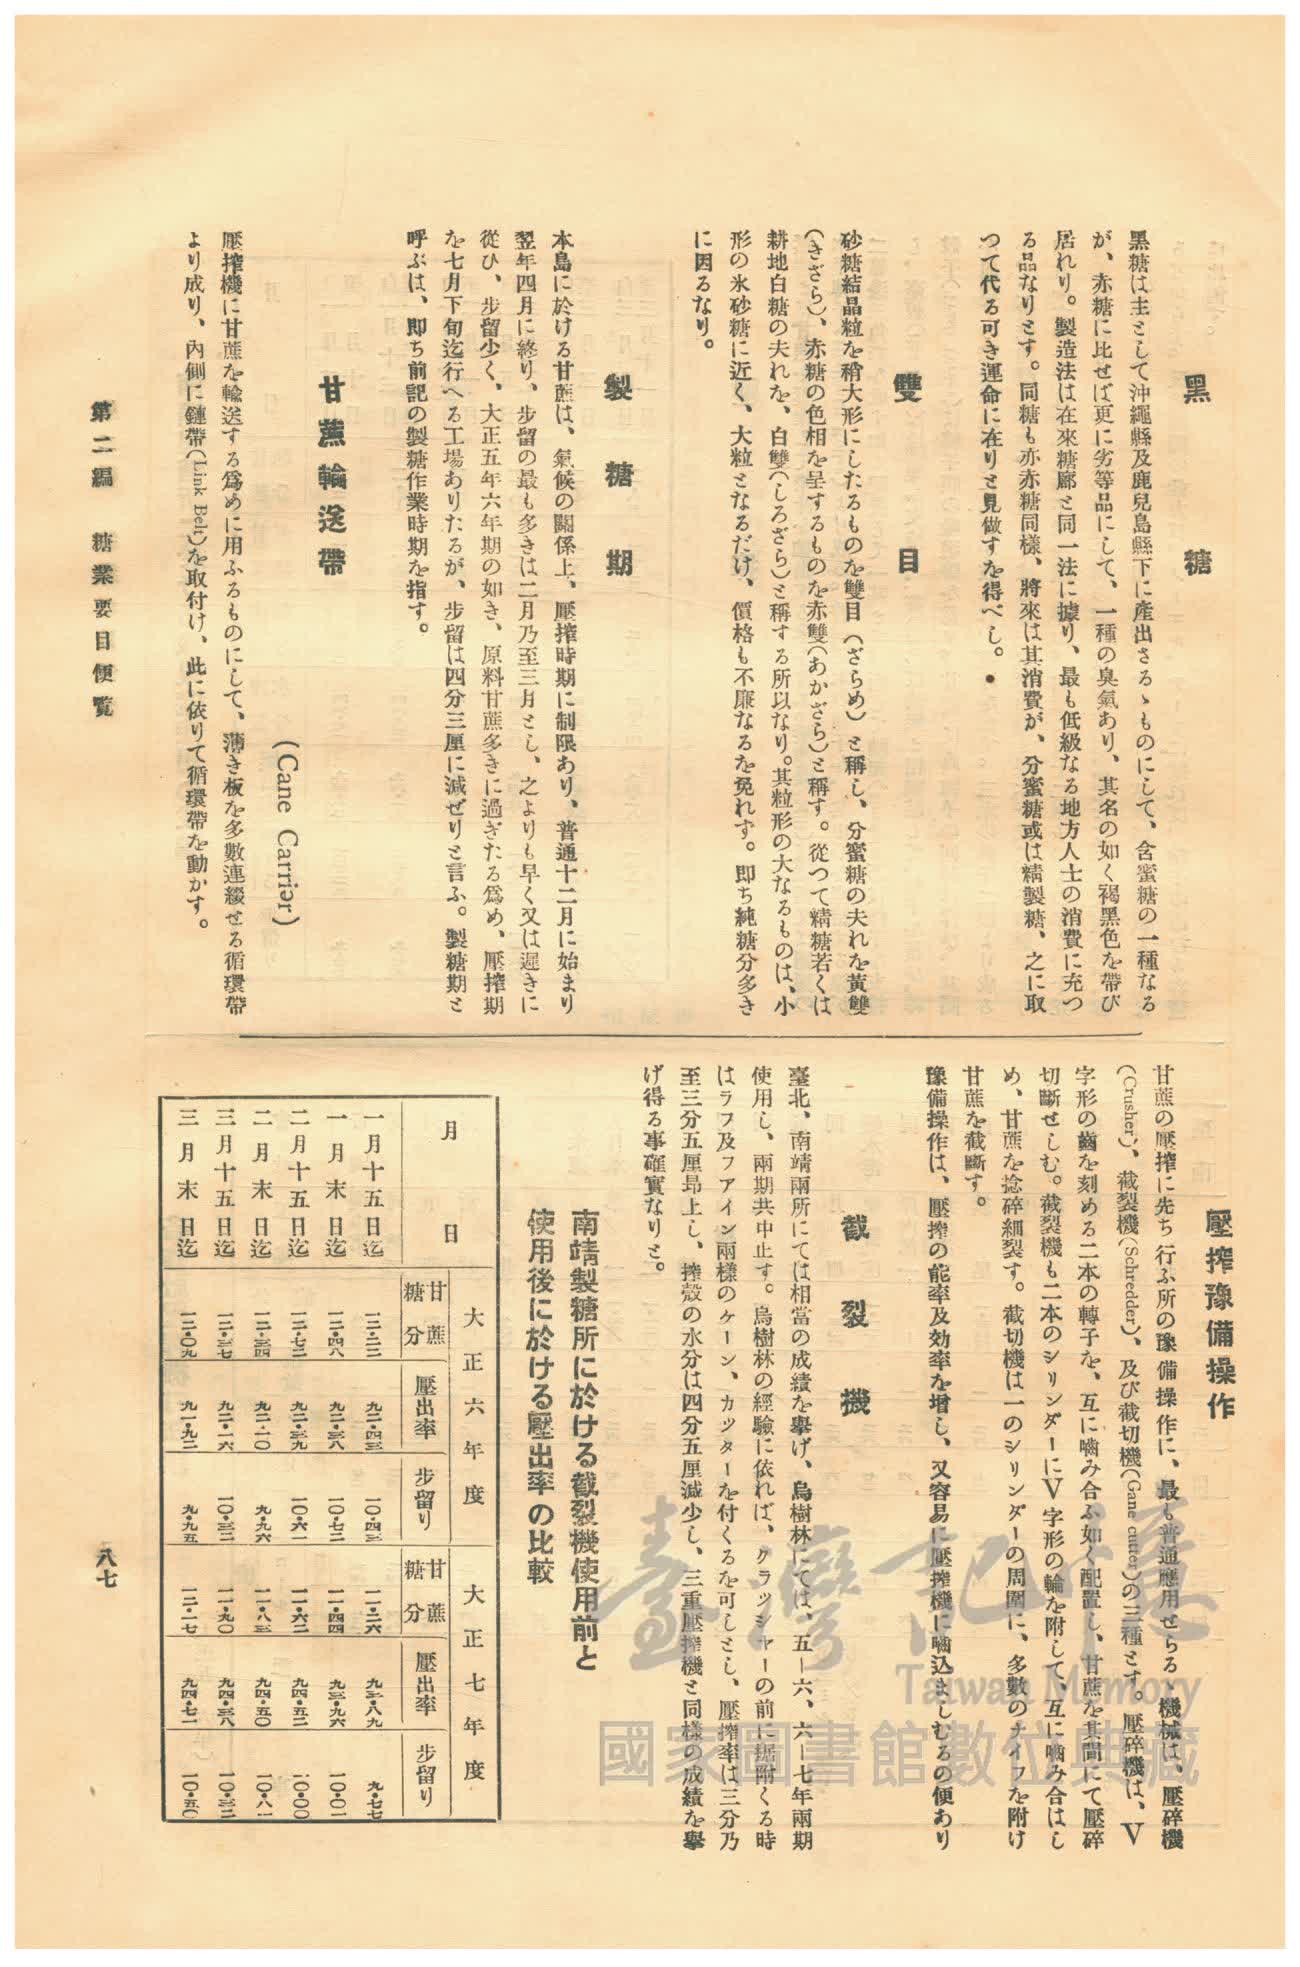 黑糖
黑糖は主として沖繩縣及鹿兒島縣下に產出さるゝものにして、含蜜糖の一種なる
が、赤糖に比せば更に劣等品にして、一種の臭氣あり、其名の如く褐黑色を帶び
居れり。製造法は在來糖廍と同一法に據り、最も低級なる地方人士の消費に充つ
る品なりとす。同糖も亦赤糖同樣、將來は其消費が、分蜜糖或は精製糖、之に取
つて代る可き運命に在りと見做すを得べし。
雙目
砂糖結晶粒を稍大形にしたるものを雙目(ざらめ)と稱し、分蜜糖の夫れを黃雙
(きざら)、赤糖の色相を呈するものを赤雙(あかざら)と稱す。從つて精糖若くは
耕地白糖の夫れを、白雙(しろざら)と稱する所以なり。其粒形の大なるものは、小
形の氷砂糖に近く、大粒となるだけ、價格も不廉なるを免れす。即ち純糖分多き
に因るなり。
製糖期
本島に於ける甘蔗は、氣候の關係上、壓搾時期に制限あり、普通十二月に始まり
翌年四月に終り、步留の最も多きは二月乃至三月とし、之よりも早く又は遲きに
從ひ、步留少く、大正五年六年期の如き、原料甘蔗多きに過ぎたる爲め、壓搾期
を七月下旬迄行へる工場ありたるが、步留は四分三厘に減ぜりと言ふ。製糖期と
呼ぶは、即ち前記の製糖作業時期を指す。
甘蔗輸送帶
(Cane Carrier)
壓搾機に甘蔗を輸送する爲めに用ふるものにして、薄き板を多數連綴せる循環帶
より成り、內側に鏈帶(Link Belt)を取付け、此に依りて循環帶を動かす。
壓搾豫備操作
甘蔗の壓搾に先ち行ふ所の豫備操作に、最も普通應用せらるゝ機械は、壓碎機
(Crusher)、截裂機(Schredder)、及び截切機(Gane cutter)の三種とす。壓碎機は、V
字形の齒を刻める二本の轉子を、互に嚙み合ふ如く配置し、甘蔗を其間にて壓碎
切斷せしむ。截裂機も二本のシリンダーにV字形の輪を附して、互に嚙み合はし
め、甘蔗を捻碎細裂す。截切機は一のシリンダーの周圍に、多數のナイフを附け
甘蔗を截斷す。
豫備操作は、壓搾の能率及効率を增し、又容易に壓搾機に嚙込ましむるの便あり
截裂機
臺北、南靖兩所にては相當の成績を擧げ、烏樹林にては、五—六、六—七年兩期
使用し、兩期共中止す。烏樹林の經驗に依れば、クラッシャーの前に据附くる時
はラフ及フアイン兩樣のケーン、カッターを付くるを可しとし、壓搾率は三分乃
至三分五厘昂上し、搾殼の水分は四分五厘減少し、三重壓搾機と同樣の成績を擧
げ得る事確實なりと。
南靖製糖所に於ける截裂機使用前と
使用後に於ける壓出率の比較
月日 大正六年度 大正七年度
甘蔗糖分 壓出率 步留り 甘蔗糖分 壓出率 步留り
一月十五日迄 一二・二二 九二・四三 一〇・四三 一一・二六 九三・八九 九・七七
一月末日迄 一二・四八 九二・三八 一〇・七二 一一・四四 九三・九六 一〇・〇一
二月十五日迄 一二・七二 九二・三九 一〇・六一 一一・六二 九四・五二 一〇・〇〇
二月末日迄 一二・三四 九二・一〇 九・九六 一一・八三 九四・五〇 一〇・八一
三月十五日迄 一二・三七 九二・一六 一〇・三二 一一・九〇 九四・三八 一〇・三二
三月末日迄 一二・〇九 九一・九二 九・九五 一二・一七 九四・七一 一〇・五〇
第二編 糖業要目便覽
八七
臺灣記憶
Taiwan Memory
國家圖書館數位典藏